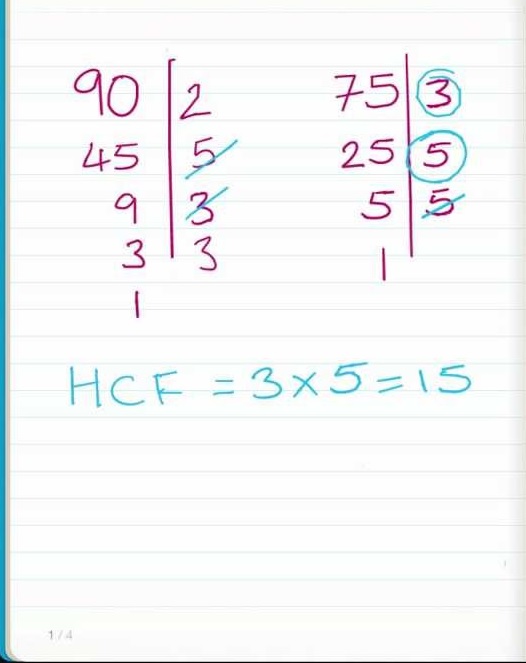 90 | 2 75 | 3
45 | 5 25 | 5
9 | 3 5 | 5
3 | 3 1
1
HCF = 3 × 5 = 15
1 / 4